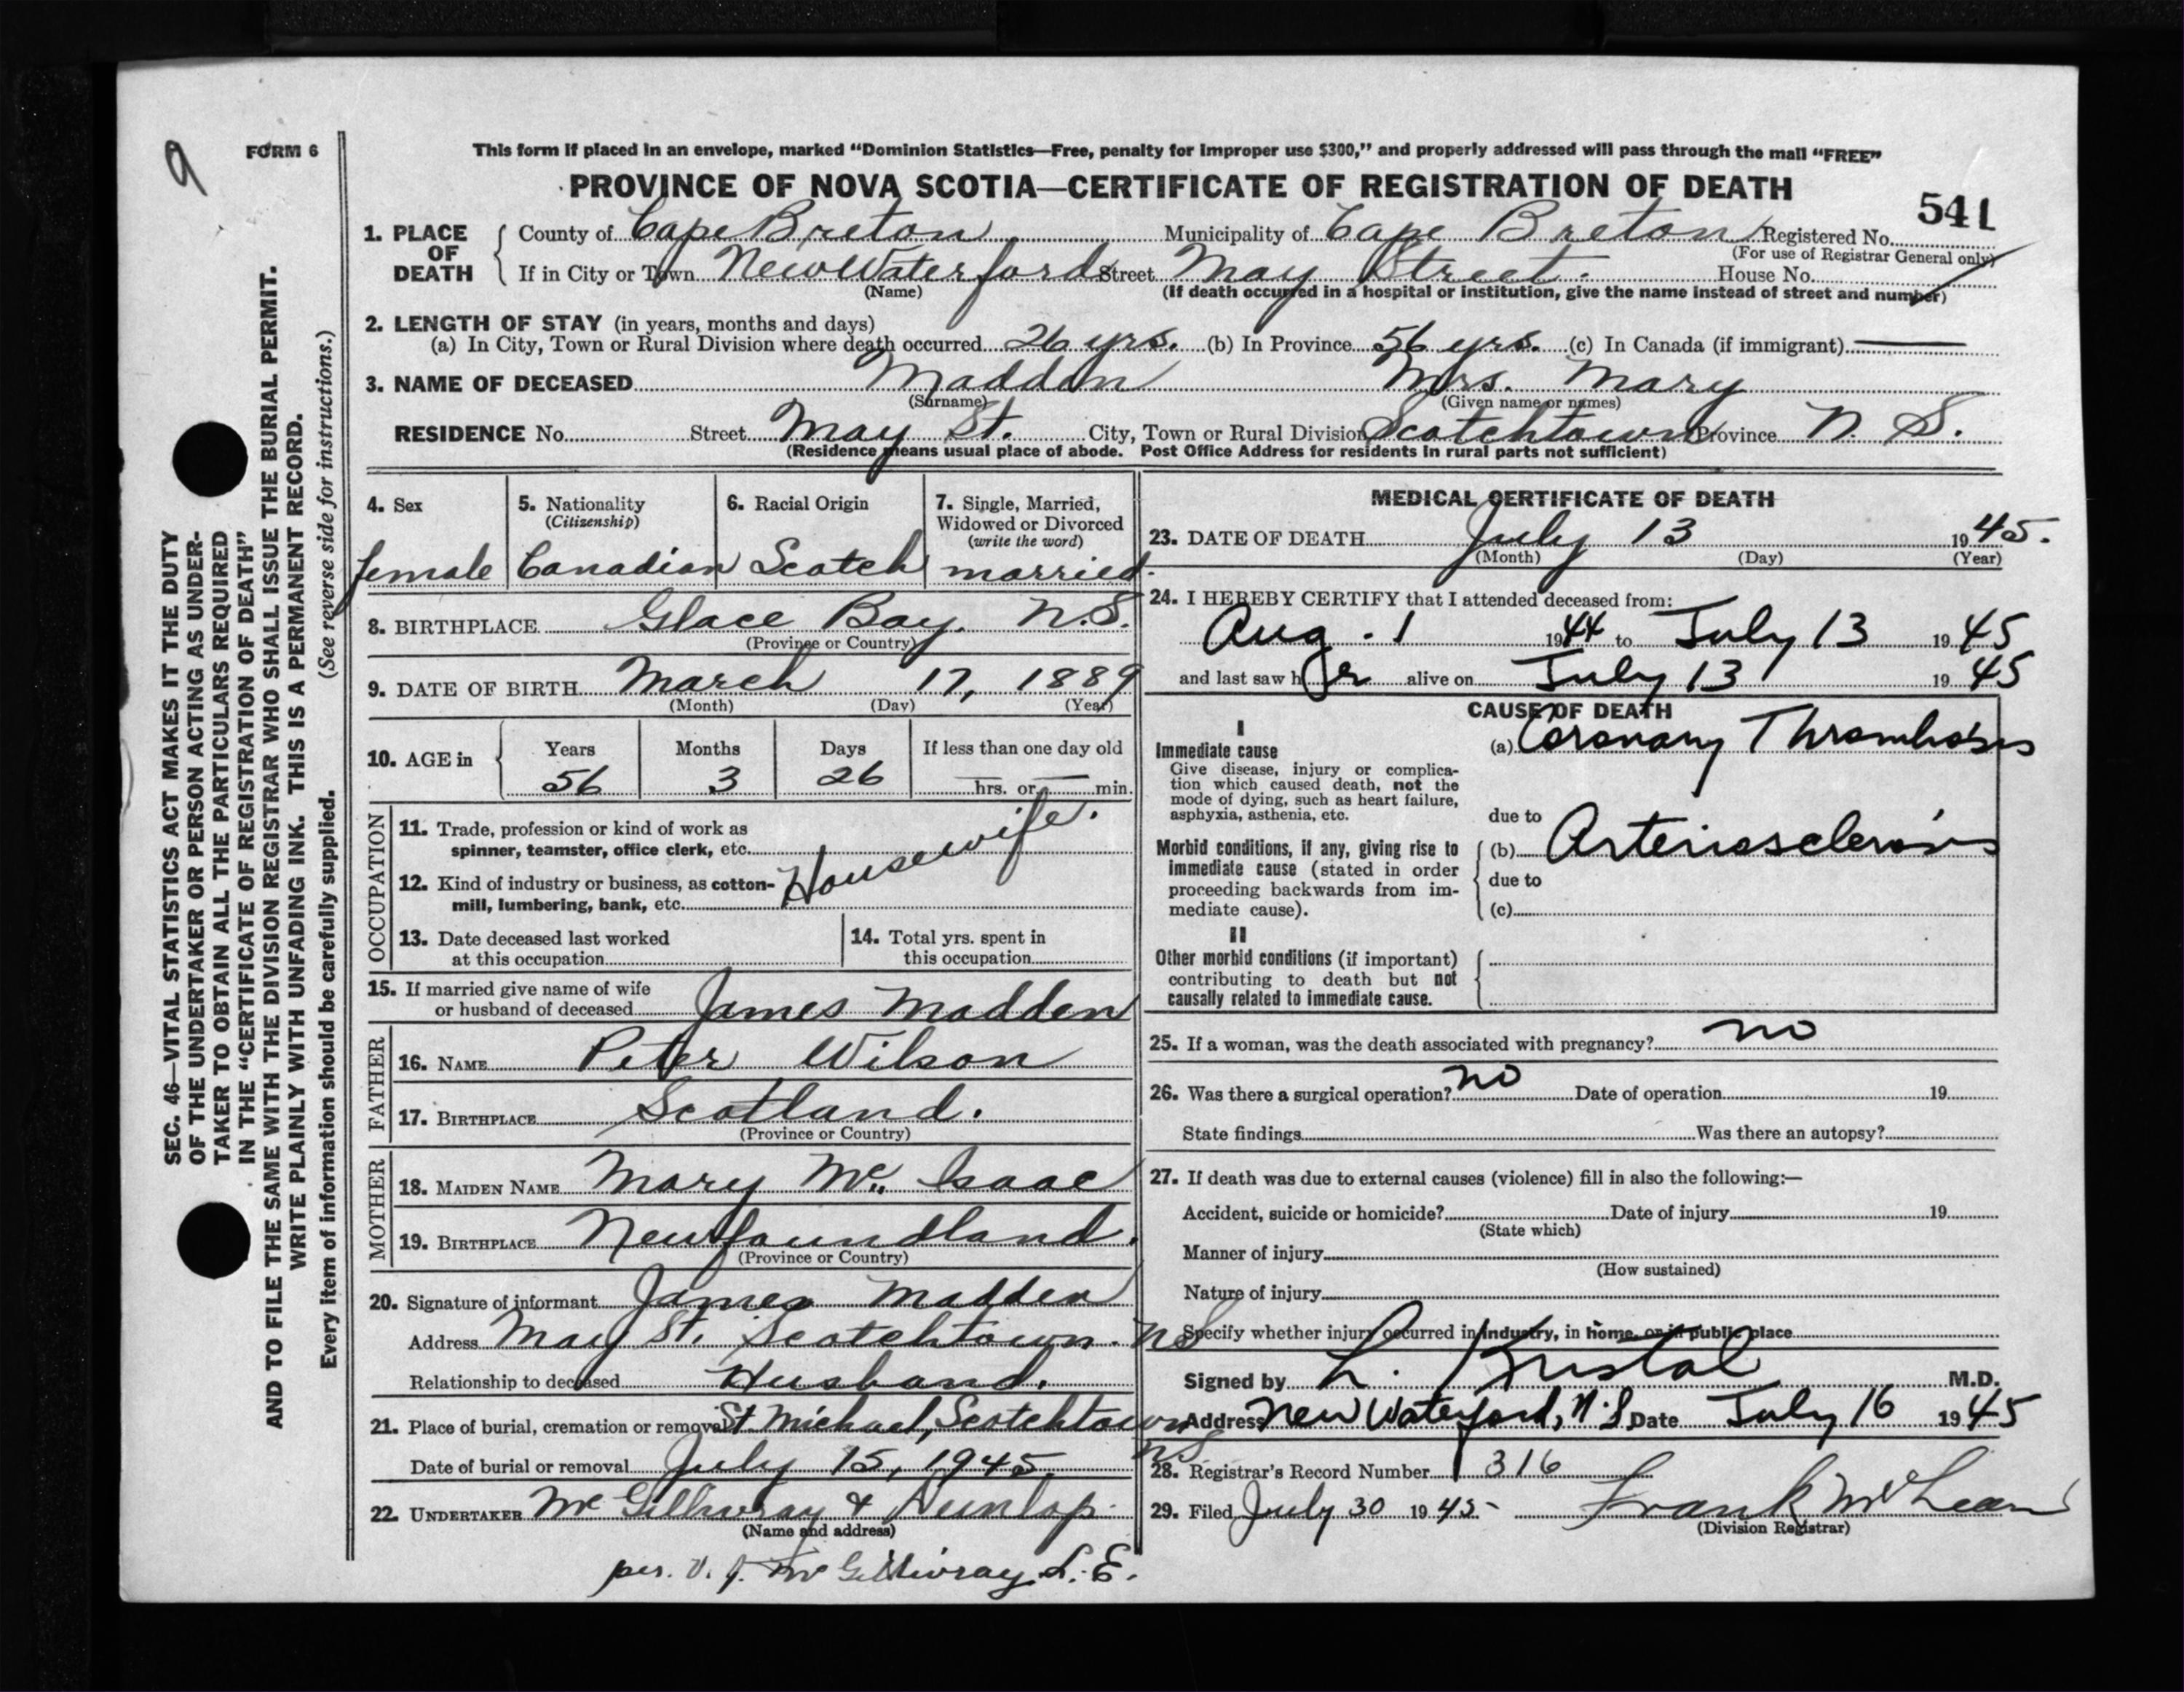 9
FORM 6
SEC. 46—VITAL STATISTICS ACT MAKES IT THE DUTY
OF THE UNDERTAKER OR PERSON ACTING AS UNDER-
TAKER TO OBTAIN ALL THE PARTICULARS REQUIRED
IN THE "CERTIFICATE OF REGISTRATION OF DEATH"
AND TO FILE THE SAME WITH THE DIVISION REGISTRAR WHO SHALL ISSUE THE BURIAL PERMIT.
WRITE PLAINLY WITH UNFADING INK. THIS IS A PERMANENT RECORD.
Every item of information should be carefully supplied. (See reverse side for instructions.)
This form if placed in an envelope, marked "Dominion Statistics—Free, penalty for improper use $300," and properly addressed will pass through the mail "FREE"
PROVINCE OF NOVA SCOTIA—CERTIFICATE OF REGISTRATION OF DEATH
541
1. PLACE OF DEATH
County of Cape Breton Municipality of Cape Breton Registered No.
(For use of Registrar General only)
If in City or Town New Waterford Street May Street. House No.
(Name) (If death occurred in a hospital or institution, give the name instead of street and number)
2. LENGTH OF STAY (in years, months and days)
(a) In City, Town or Rural Division where death occurred 26 yrs. (b) In Province 56 yrs. (c) In Canada (if immigrant) —
3. NAME OF DECEASED Madden Mrs. Mary
(Surname) (Given name or names)
RESIDENCE No. Street May St. City, Town or Rural Division Scotchtown Province N. S.
(Residence means usual place of abode. Post Office Address for residents in rural parts not sufficient)
4. Sex
female
5. Nationality
(Citizenship)
Canadian
6. Racial Origin
Scotch
7. Single, Married,
Widowed or Divorced
(write the word)
married.
8. BIRTHPLACE Glace Bay. N.S.
(Province or Country)
9. DATE OF BIRTH March 17, 1889
(Month) (Day) (Year)
10. AGE in
Years Months Days If less than one day old
56 3 26 — hrs. or — min.
OCCUPATION
11. Trade, profession or kind of work as
spinner, teamster, office clerk, etc.
Housewife.
12. Kind of industry or business, as cotton-
mill, lumbering, bank, etc.
13. Date deceased last worked
at this occupation
14. Total yrs. spent in
this occupation
15. If married give name of wife
or husband of deceased James Madden
FATHER
16. NAME Peter Wilson
17. BIRTHPLACE Scotland.
(Province or Country)
MOTHER
18. MAIDEN NAME Mary Mc. Isaac
19. BIRTHPLACE Newfoundland.
(Province or Country)
20. Signature of informant James Madden
Address May St. Scotchtown. NS
Relationship to deceased Husband.
21. Place of burial, cremation or removal St. Michael, Scotchtown
NS
Date of burial or removal July 15, 1945.
22. UNDERTAKER McGillivray & Dunlop.
(Name and address)
per. McGillivray L.E.
MEDICAL CERTIFICATE OF DEATH
23. DATE OF DEATH July 13 1945.
(Month) (Day) (Year)
24. I HEREBY CERTIFY that I attended deceased from:
Aug. 1 1944 to July 13 1945
and last saw her alive on July 13 1945
CAUSE OF DEATH
I
Immediate cause
Give disease, injury or complica-
tion which caused death, not the
mode of dying, such as heart failure,
asphyxia, asthenia, etc.
(a) Coronary Thrombosis
due to
Morbid conditions, if any, giving rise to
immediate cause (stated in order
proceeding backwards from im-
mediate cause).
(b) Arteriosclerosis
due to
(c)
II
Other morbid conditions (if important)
contributing to death but not
causally related to immediate cause.
25. If a woman, was the death associated with pregnancy? no
26. Was there a surgical operation? no Date of operation 19
State findings Was there an autopsy?
27. If death was due to external causes (violence) fill in also the following:—
Accident, suicide or homicide? Date of injury 19
(State which)
Manner of injury
(How sustained)
Nature of injury
Specify whether injury occurred in industry, in home, or in public place
Signed by L. Kristal M.D.
Address New Waterford, N.S. Date July 16 1945
28. Registrar's Record Number 316
29. Filed July 30 1945 Frank McLean
(Division Registrar)